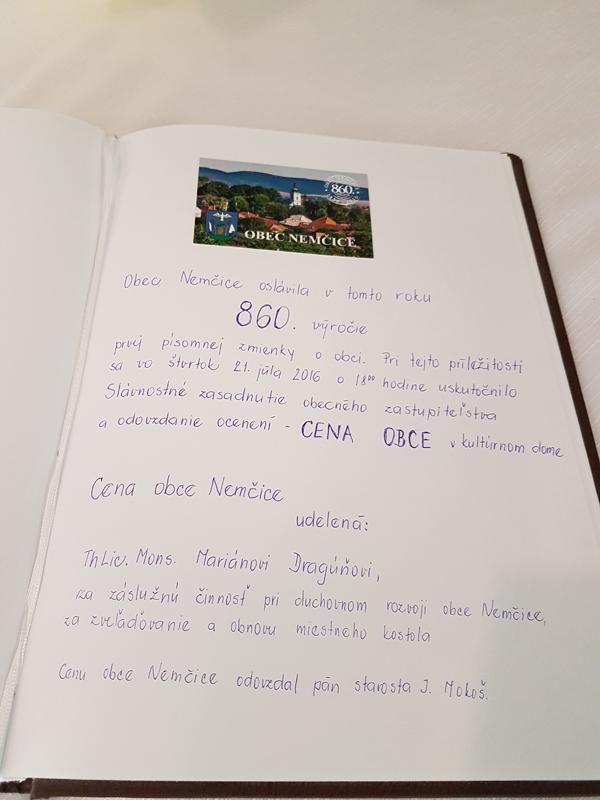 860.
OBEC NEMČICE
Obec Nemčice oslávila v tomto roku
860. výročie
prvej písomnej zmienky o obci. Pri tejto príležitosti
sa vo štvrtok 21. júla 2016 o 18⁰⁰ hodine uskutočnilo
Slávnostné zasadnutie obecného zastupiteľstva
a odovzdanie ocenení - CENA OBCE v kultúrnom dome
Cena obce Nemčice
udelená:
ThLic. Mons. Mariánovi Dragúňovi,
za záslužnú činnosť pri duchovnom rozvoji obce Nemčice,
za zveľaďovanie a obnovu miestneho kostola
Cenu obce Nemčice odovzdal pán starosta J. Mokoš.